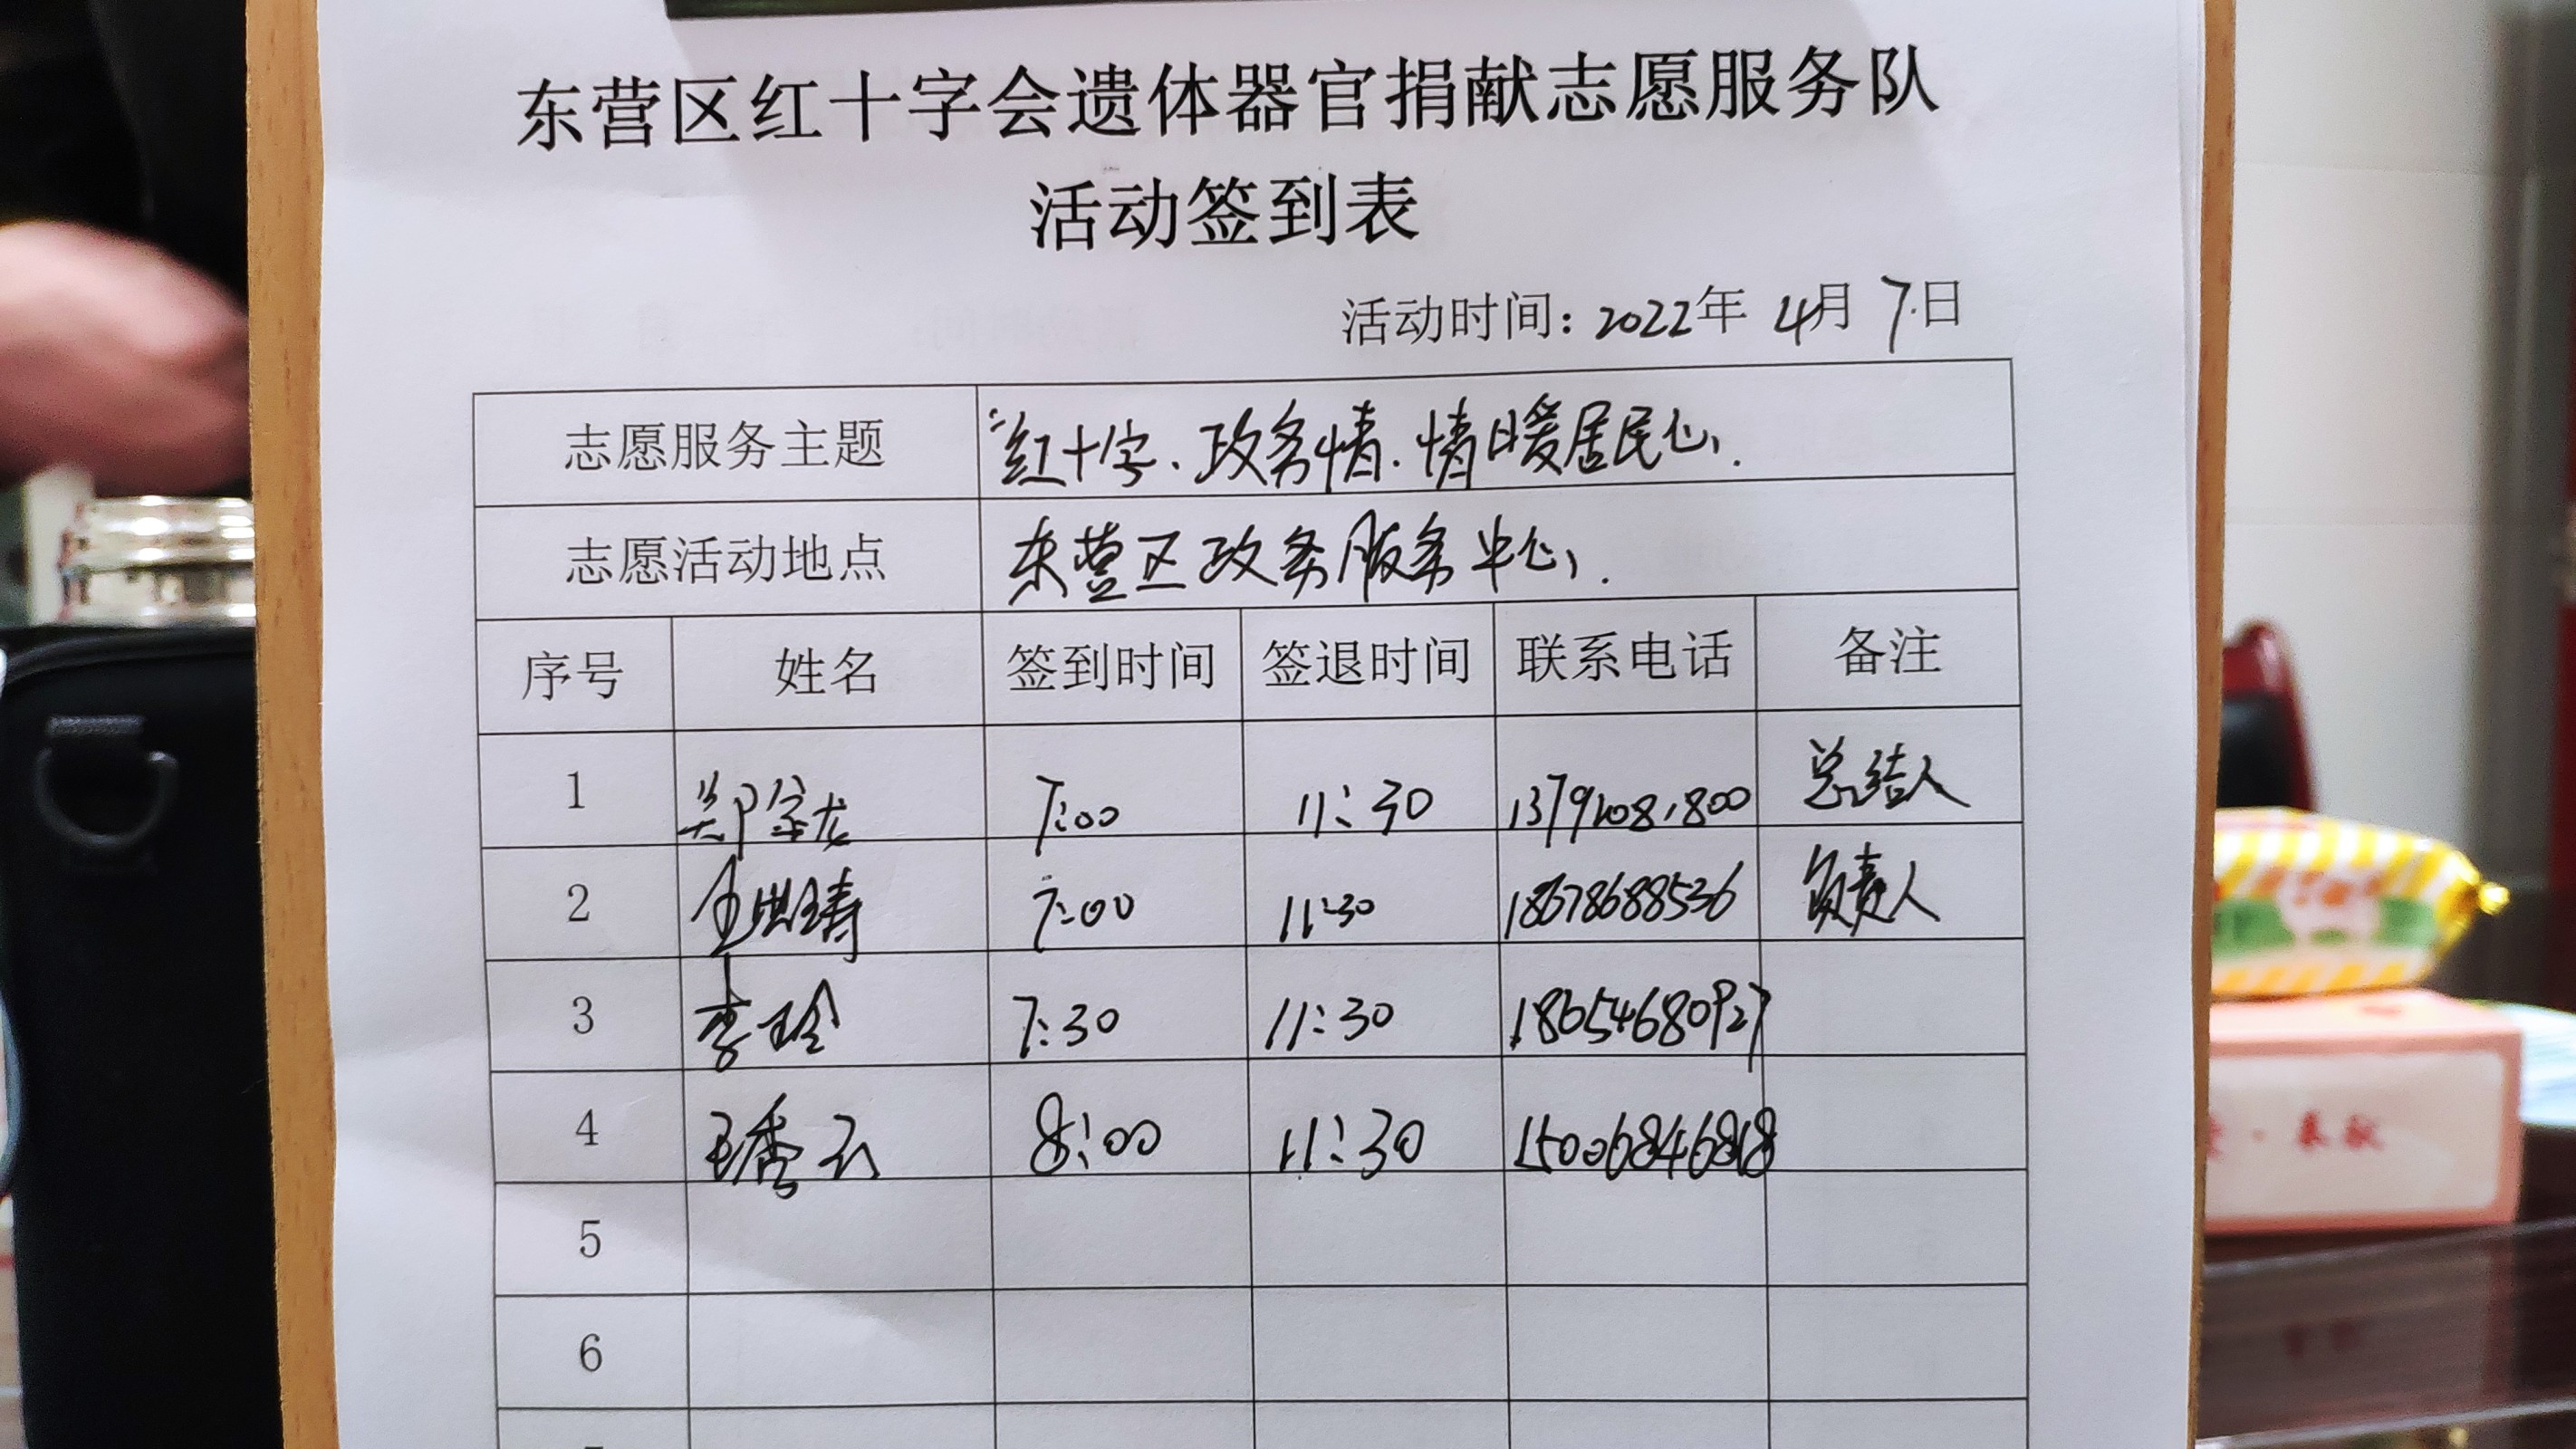 东营区红十字会遗体器官捐献志愿服务队
活动签到表
活动时间：2022年 4月 7日
志愿服务主题 “红十字、政务情、情暖居民心.
志愿活动地点 东营区政务服务中心.
序号 姓名 签到时间 签退时间 联系电话 备注
1 郑宗龙 7:00 11:30 13792081800 总结人
2 7:00 11:30 18678688536 负责人
3 李玲 7:30 11:30 18654680927
4 王秀云 8:00 11:30 15006846818
5
6